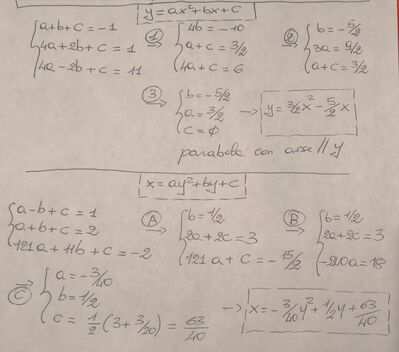 y=ax²+bx+c
{a+b+c=-1
4a+2b+c=1
4a-2b+c=11
① →
{4b=-10
a+c=3/2
4a+c=6
② →
{b=-5/2
3a=9/2
a+c=3/2
③ →
{b=-5/2
a=3/2
c=0
→ y=3/2x²-5/2x
parabola con asse // y
x=ay²+by+c
{a-b+c=1
a+b+c=2
121a+11b+c=-2
Ⓐ →
{b=1/2
2a+2c=3
121a+c=-15/2
Ⓑ →
{b=1/2
2a+2c=3
-240a=18
Ⓒ →
{a=-3/40
b=1/2
c=1/2(3+3/20)=63/40
→ x=-3/40y²+1/2y+63/40